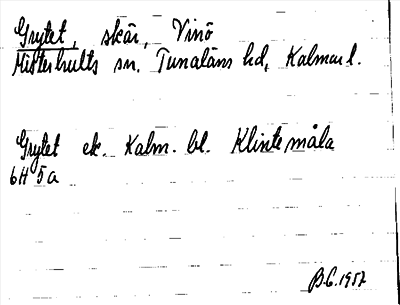 Grytet, skär, Vinö
Misterhults sn. Tunaläns hd, Kalmar l.
Grytet ek. Kalm. bl. Klintemåla
6H 5a
B.G. 1957